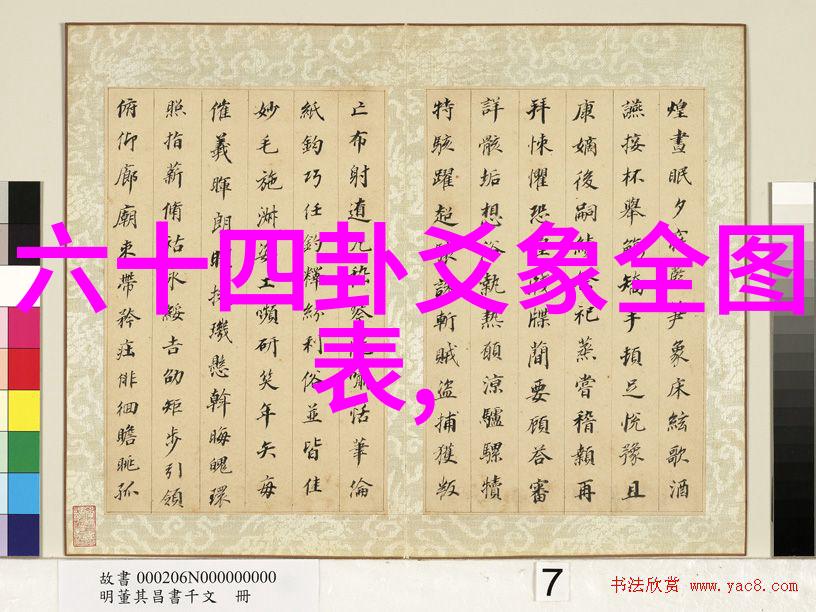 煌晝眠夕寐象床絃歌酒
讌接杯舉觴矯手頓足悅豫且
康嫡後嗣續祀蒸嘗稽顙再
拜悚懼恐牒簡要顧答審
詳骸垢想浴執熱願涼驢騾犢
特駭躍超驤斬賊盜捕獲叛
亡布射遼丸嘯恬筆倫
紙鈞巧任釣釋紛利俗並皆佳
妙毛施淑姿工嚬妍笑年矢每
催羲暉朗曜璣懸斡晦魄環
照指薪脩祜永綏吉劭矩步引領
俯仰廊廟束帶矜莊徘徊瞻眺孤
六十四卦爻象全图
表,
故書 000206N000000000
明董其昌書千文 冊
7
书法欣赏 www.yac8.com